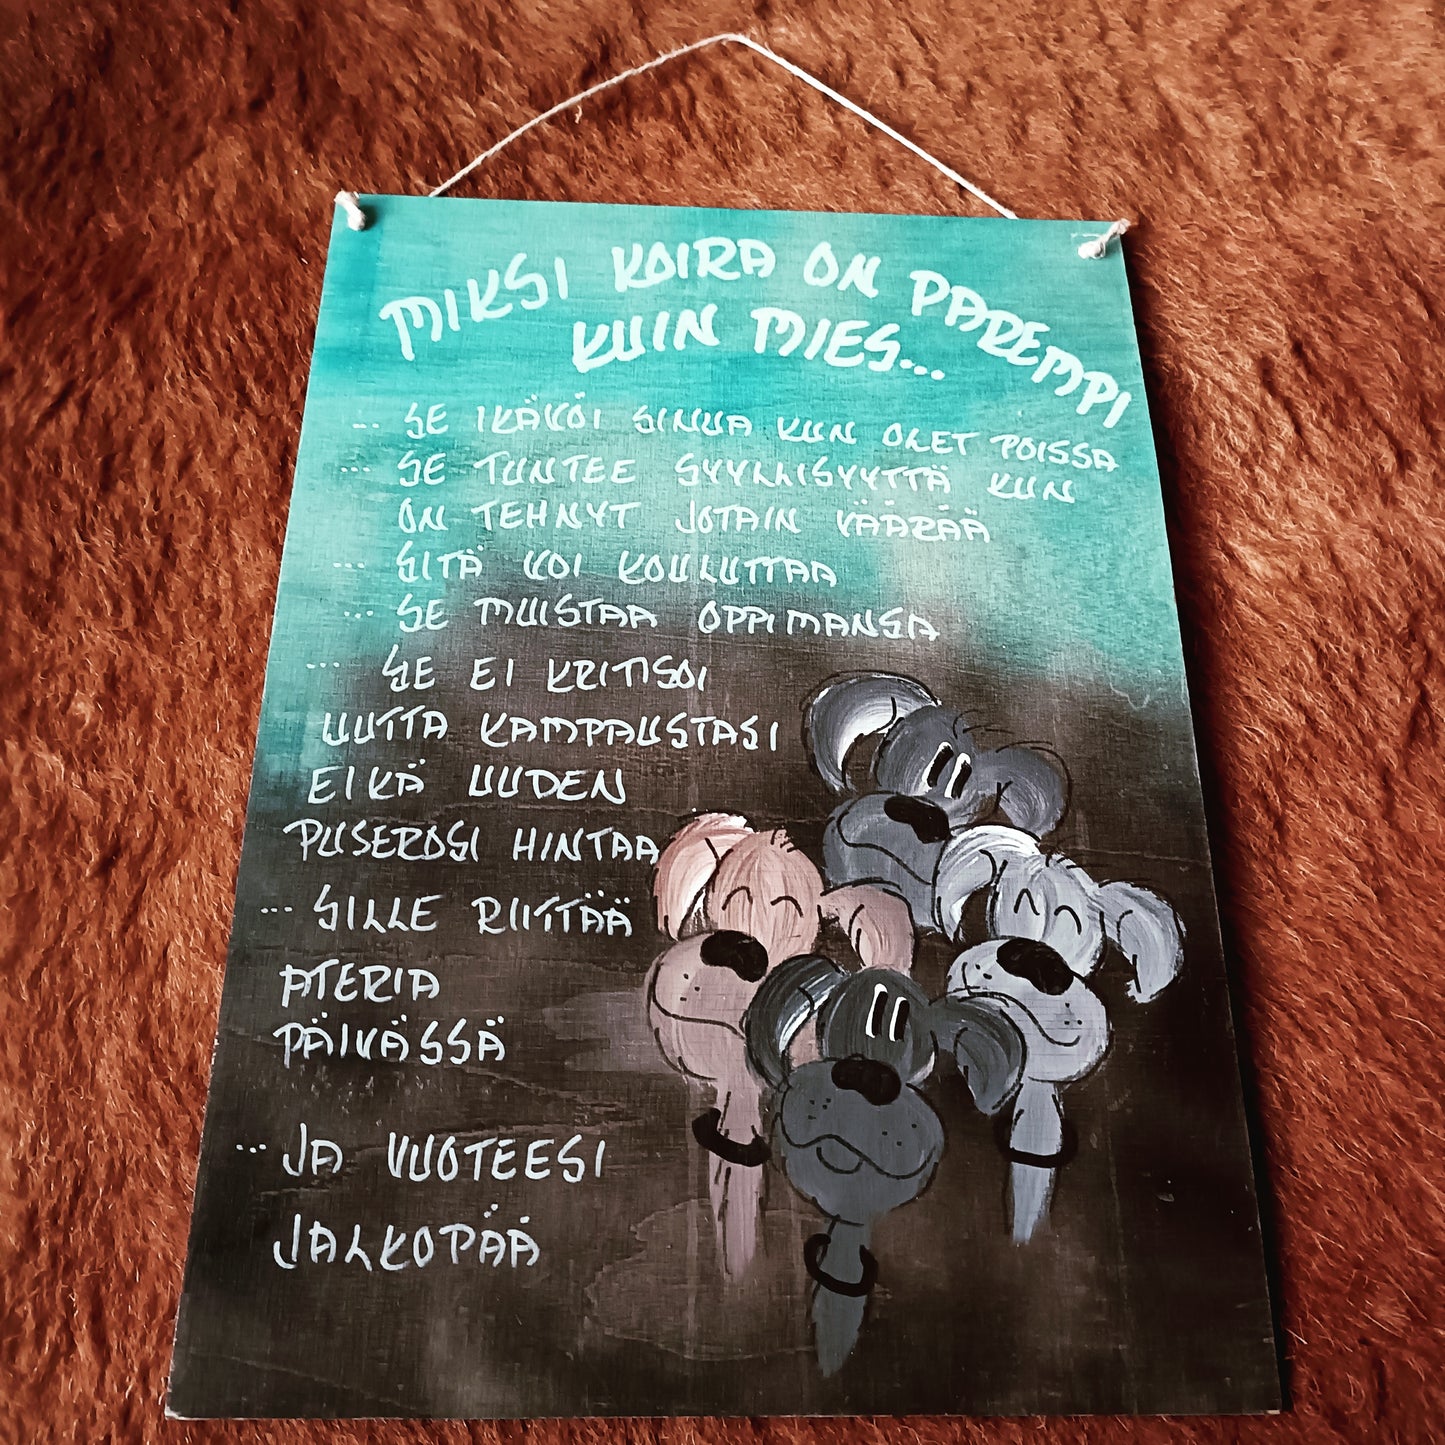 MIKSI KOIRA ON PAREMPI
KUIN MIES...
... SE IKÄVÖI SINUA KUN OLET POISSA
... SE TUNTEE SYYLLISYYTTÄ KUN
ON TEHNYT JOTAIN VÄÄRÄÄ
... SITÄ VOI KOULUTTAA
... SE MUISTAA OPPIMANSA
... SE EI KRITISOI
UUTTA KAMPAUSTASI
EIKÄ UUDEN
PUSEROSI HINTAA
... SILLE RIITTÄÄ
ATERIA
PÄIVÄSSÄ
... JA VUOTEESI
JALKOPÄÄ